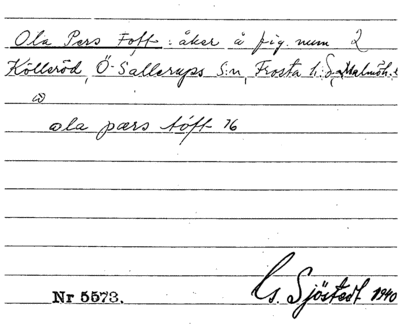 Ola Pers Toft : åker å fig. num 2
Kölleröd, Ö. Sallerups S:n, Frosta h:d, Malmöh. l.
ola pærs tóft 16
Nr 5573.
G. Sjöstedt 1940